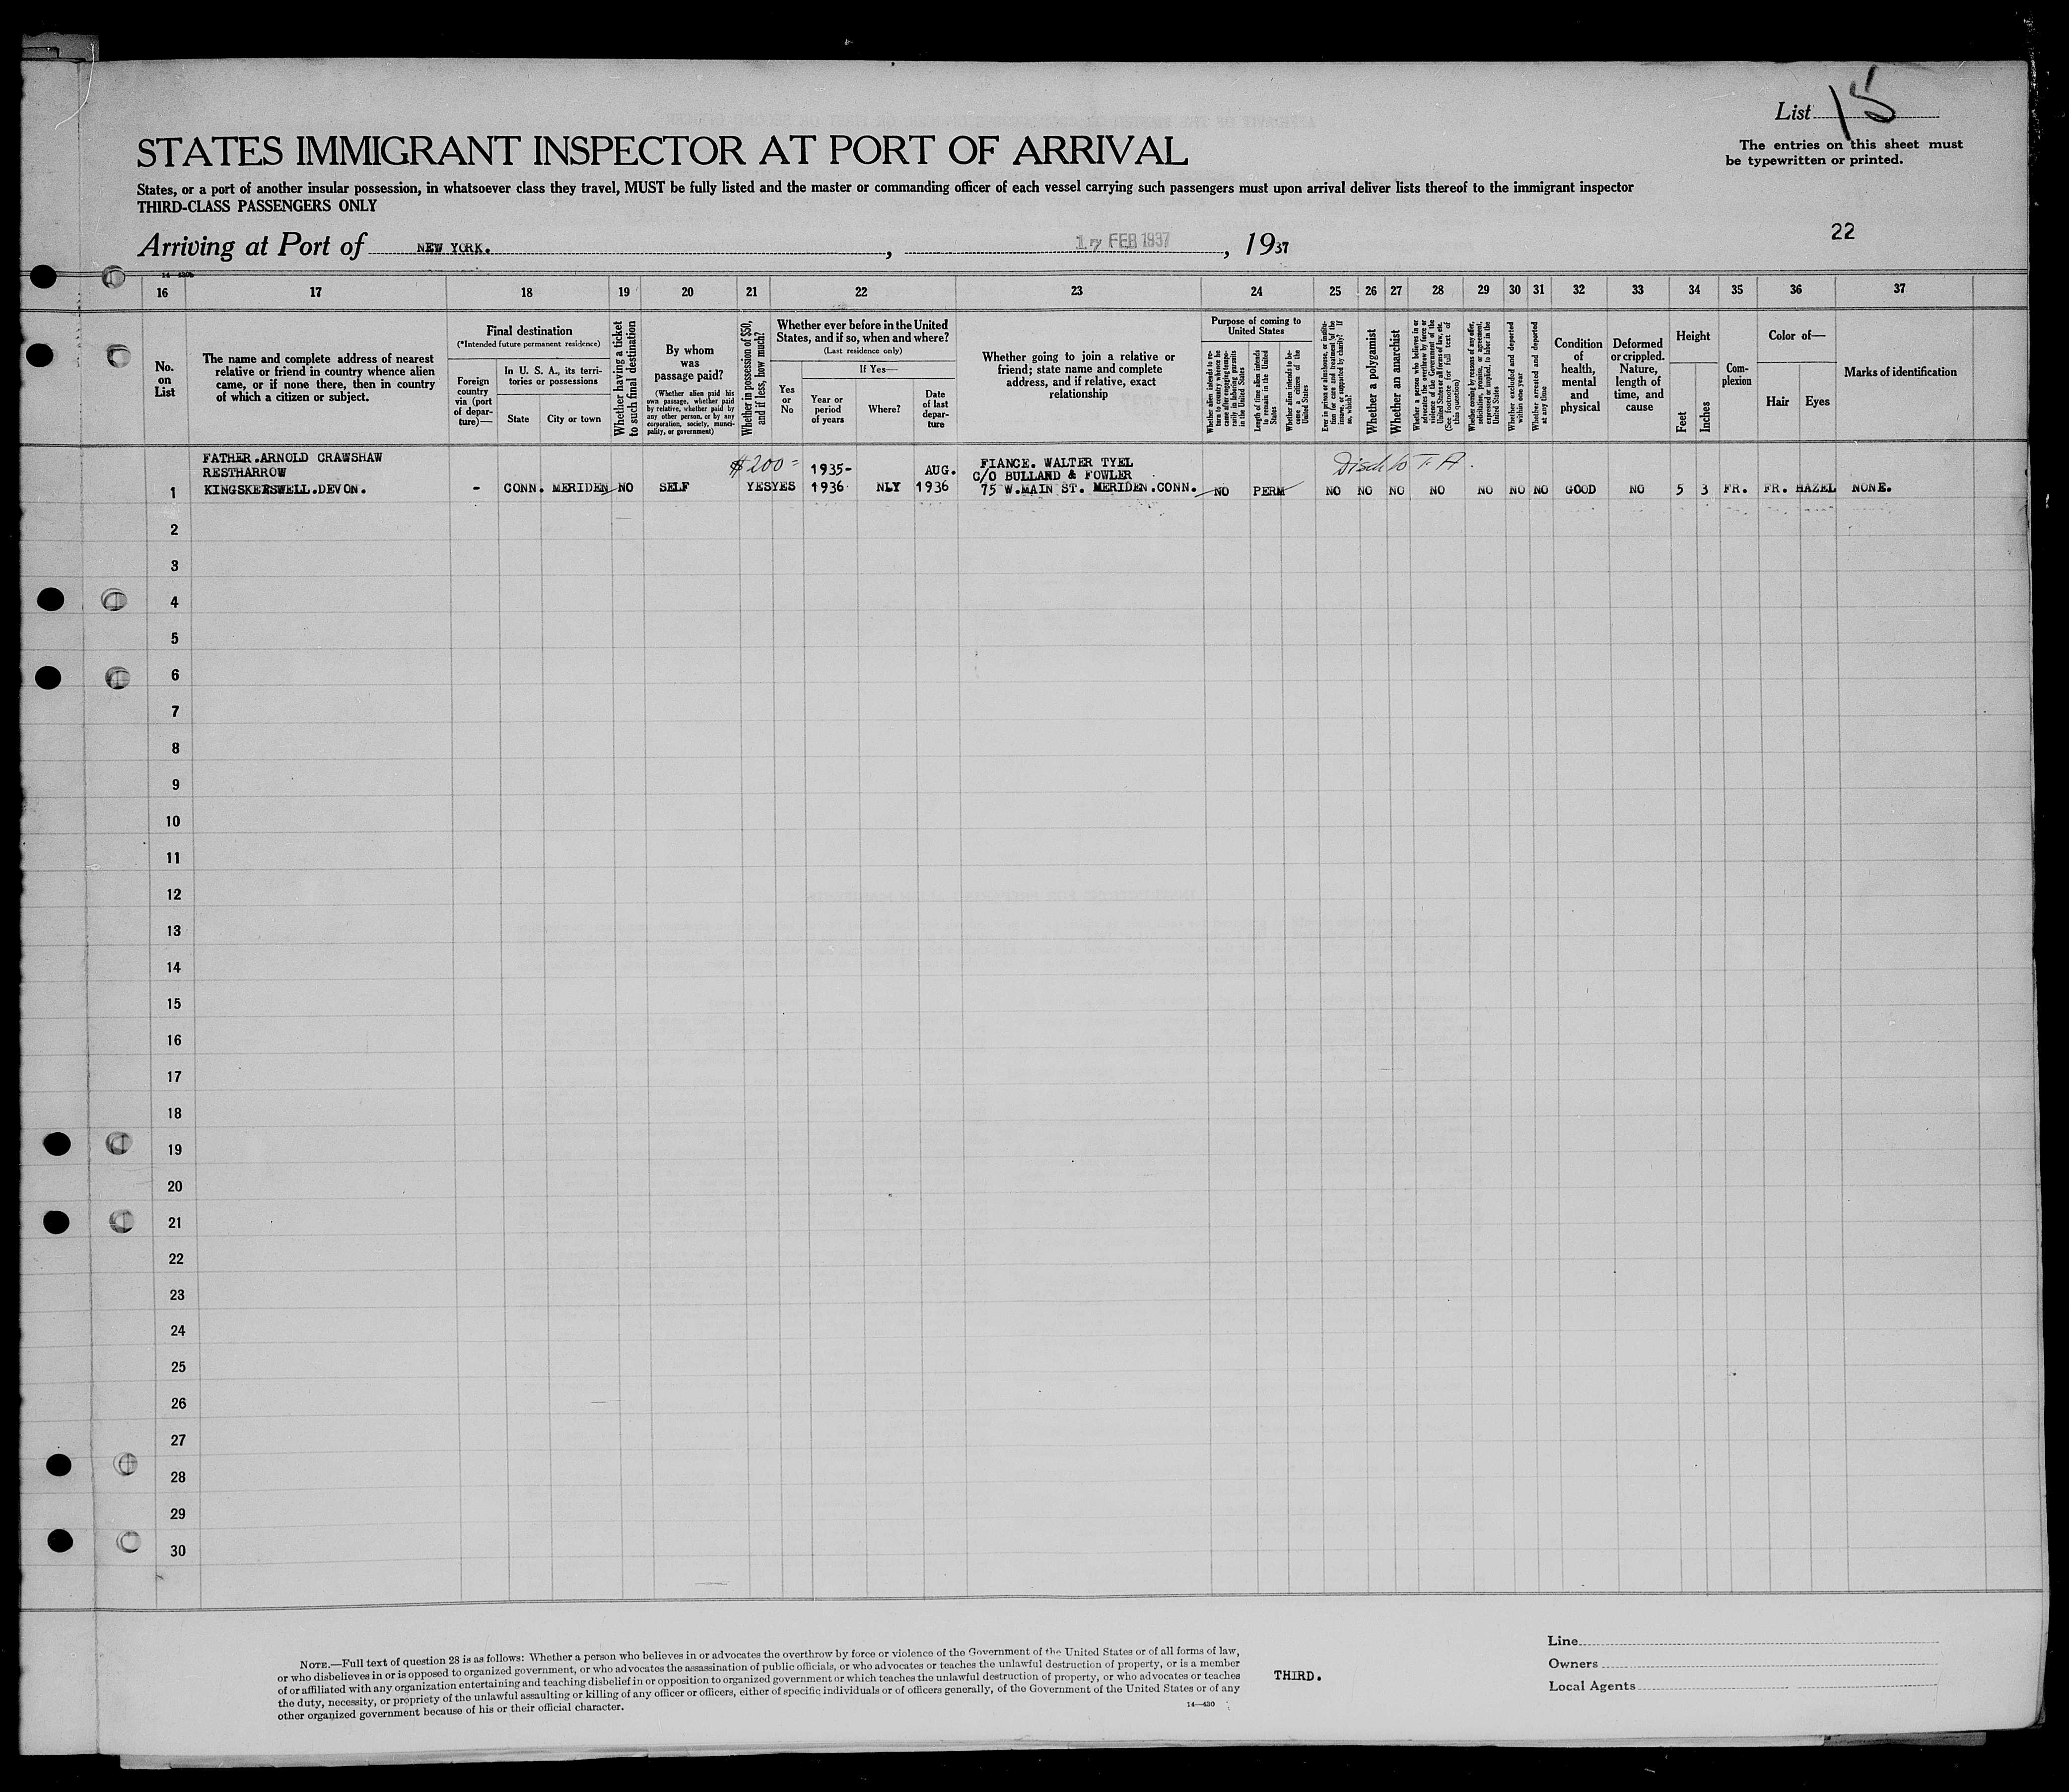 List 15
The entries on this sheet must
be typewritten or printed.
STATES IMMIGRANT INSPECTOR AT PORT OF ARRIVAL
States, or a port of another insular possession, in whatsoever class they travel, MUST be fully listed and the master or commanding officer of each vessel carrying such passengers must upon arrival deliver lists thereof to the immigrant inspector
THIRD-CLASS PASSENGERS ONLY
Arriving at Port of NEW YORK. , 17 FEB 1937 , 1937
22
16 17 18 19 20 21 22 23 24 25 26 27 28 29 30 31 32 33 34 35 36 37
No.
on
List
The name and complete address of nearest
relative or friend in country whence alien
came, or if none there, then in country
of which a citizen or subject.
Final destination
(*Intended future permanent residence)
Foreign
country
via (port
of depar-
ture)—
In U. S. A., its terri-
tories or possessions
State
City or town
Whether having a ticket
to such final destination
By whom
was
passage paid?
(Whether alien paid his
own passage, whether paid
by relative, whether paid by
any other person, or by any
corporation, society, munici-
pality, or government)
Whether in possession of $50,
and if less, how much?
Whether ever before in the United
States, and if so, when and where?
(Last residence only)
Yes
or
No
If Yes—
Year or
period
of years
Where?
Date
of last
depar-
ture
Whether going to join a relative or
friend; state name and complete
address, and if relative, exact
relationship
Purpose of coming to
United States
Whether alien intends to re-
turn to country whence he
came after engaging tempo-
rarily in laboring pursuits
in the United States
Length of time alien intends
to remain in the United
States
Whether alien intends to be-
come a citizen of the
United States
Ever in prison or almshouse, or institu-
tion for care and treatment of the
insane, or supported by charity? If
so, which?
Whether a polygamist
Whether an anarchist
Whether a person who believes in or
advocates the overthrow by force or
violence of the Government of the
United States or all forms of law, etc.
(See footnote for full text of
this question)
Whether coming by reason of any offer,
solicitation, promise, or agreement,
expressed or implied, to labor in the
United States
Whether excluded and deported
within one year
Whether arrested and deported
at any time
Condition
of
health,
mental
and
physical
Deformed
or crippled.
Nature,
length of
time, and
cause
Height
Feet
Inches
Com-
plexion
Color of—
Hair
Eyes
Marks of identification
FATHER.ARNOLD CRAWSHAW
RESTHARROW
1 KINGSKERSWELL.DEVON. - CONN. MERIDEN NO SELF
$200=
YES YES
1935-
1936 NLY
AUG.
1936
FIANCE. WALTER TYEL
C/O BULLAND & FOWLER
75 W.MAIN ST. MERIDEN.CONN.
NO PERM
Disch to T. A.
NO NO NO NO NO NO NO GOOD NO 5 3 FR. FR. HAZEL NONE.
2
3
4
5
6
7
8
9
10
11
12
13
14
15
16
17
18
19
20
21
22
23
24
25
26
27
28
29
30
NOTE.—Full text of question 28 is as follows: Whether a person who believes in or advocates the overthrow by force or violence of the Government of the United States or of all forms of law,
or who disbelieves in or is opposed to organized government, or who advocates the assassination of public officials, or who advocates or teaches the unlawful destruction of property, or is a member
of or affiliated with any organization entertaining and teaching disbelief in or opposition to organized government or which teaches the unlawful destruction of property, or who advocates or teaches
the duty, necessity, or propriety of the unlawful assaulting or killing of any officer or officers, either of specific individuals or of officers generally, of the Government of the United States or of any
other organized government because of his or their official character.
14—430
THIRD.
Line
Owners
Local Agents